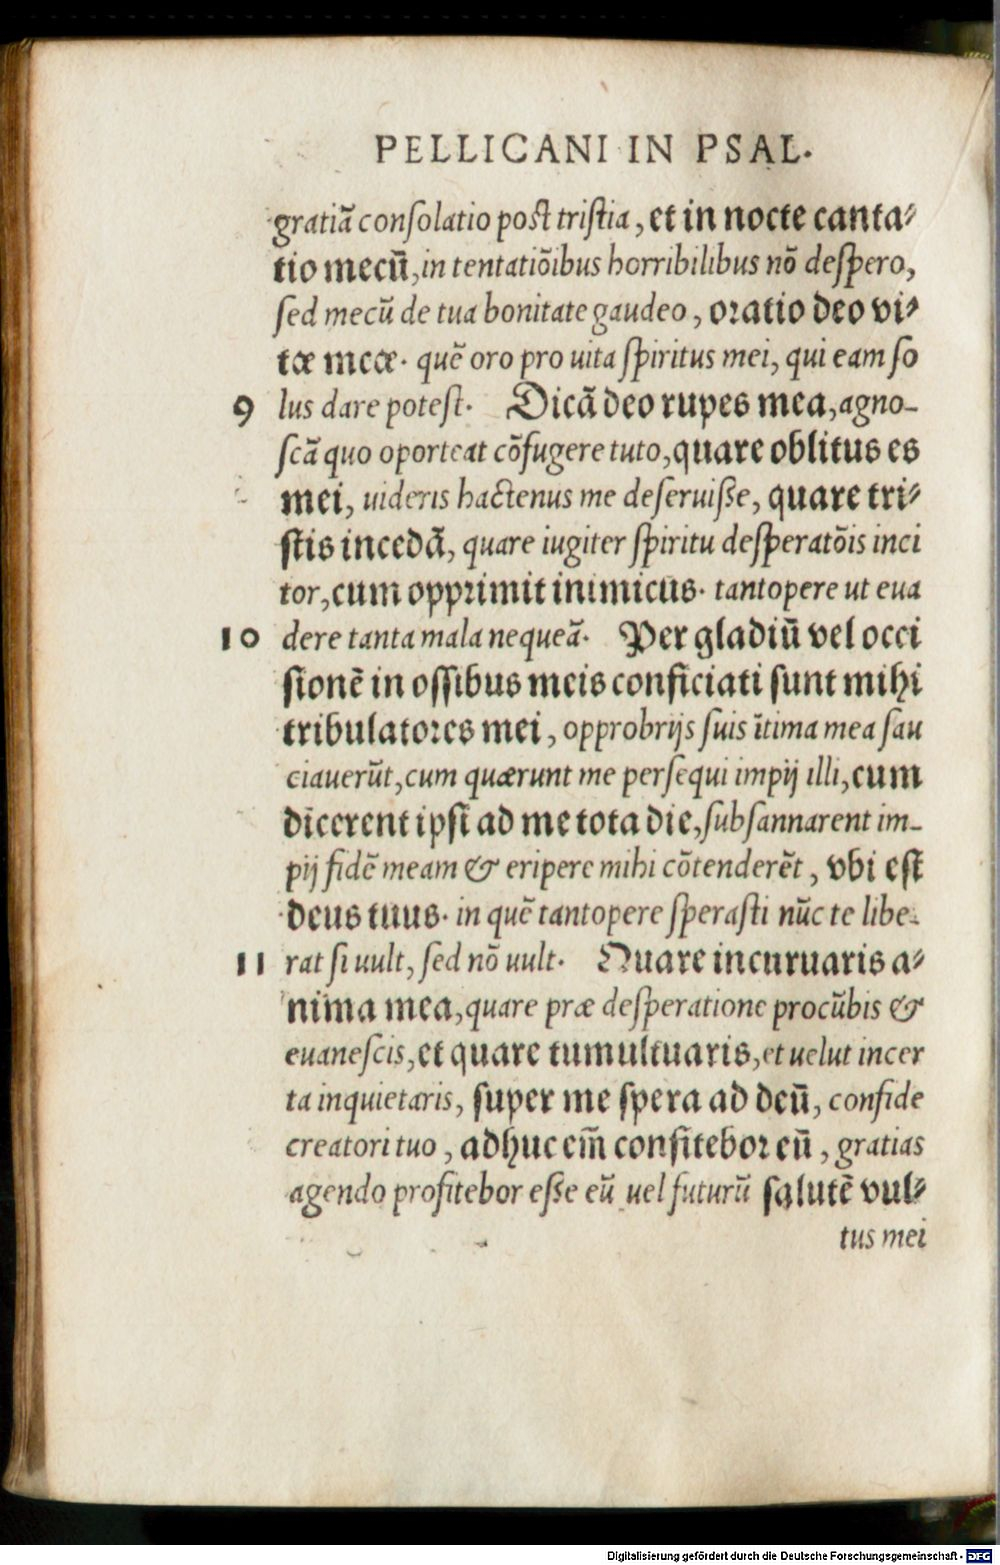 PELLICANI IN PSAL.
gratiã conſolatio poſt triſtia, et in nocte canta⸗
tio mecũ, in tentatiõibus horribilibus nõ deſpero,
ſed mecũ de tua bonitate gaudeo, oratio deo vi⸗
tæ meæ. quẽ oro pro uita ſpiritus mei, qui eam ſo
9 lus dare poteſt. Dicã deo rupes mea, agno-
ſcã quo oporteat cõfugere tuto, quare oblitus es
mei, uideris hactenus me deſeruiſſe, quare tri⸗
ſtis incedã, quare iugiter ſpiritu deſperatõis inci
tor, cum opprimit inimicus. tantopere ut eua
10 dere tanta mala nequeã. Per gladiũ vel occi
ſionẽ in oſſibus meis conficiati ſunt mihi
tribulatores mei, opprobrijs ſuis ĩtima mea ſau
ciauerũt, cum quærunt me perſequi impij illi, cum
dicerent ipſi ad me tota die, ſubſannarent im-
pij fidẽ meam & eripere mihi cõtenderẽt, vbi eſt
deus tuus. in quẽ tantopere ſperaſti nũc te libe-
11 rat ſi uult, ſed nõ uult. Quare incuruaris a⸗
nima mea, quare præ deſperatione procũbis &
euaneſcis, et quare tumultuaris, et uelut incer
ta inquietaris, ſuper me ſpera ad deũ, confide
creatori tuo, adhuc em̃ confitebor eũ, gratias
agendo profitebor eſſe eũ uel futurũ ſalutẽ vul⸗
tus mei
Digitalisierung gefördert durch die Deutsche Forschungsgemeinschaft - DFG